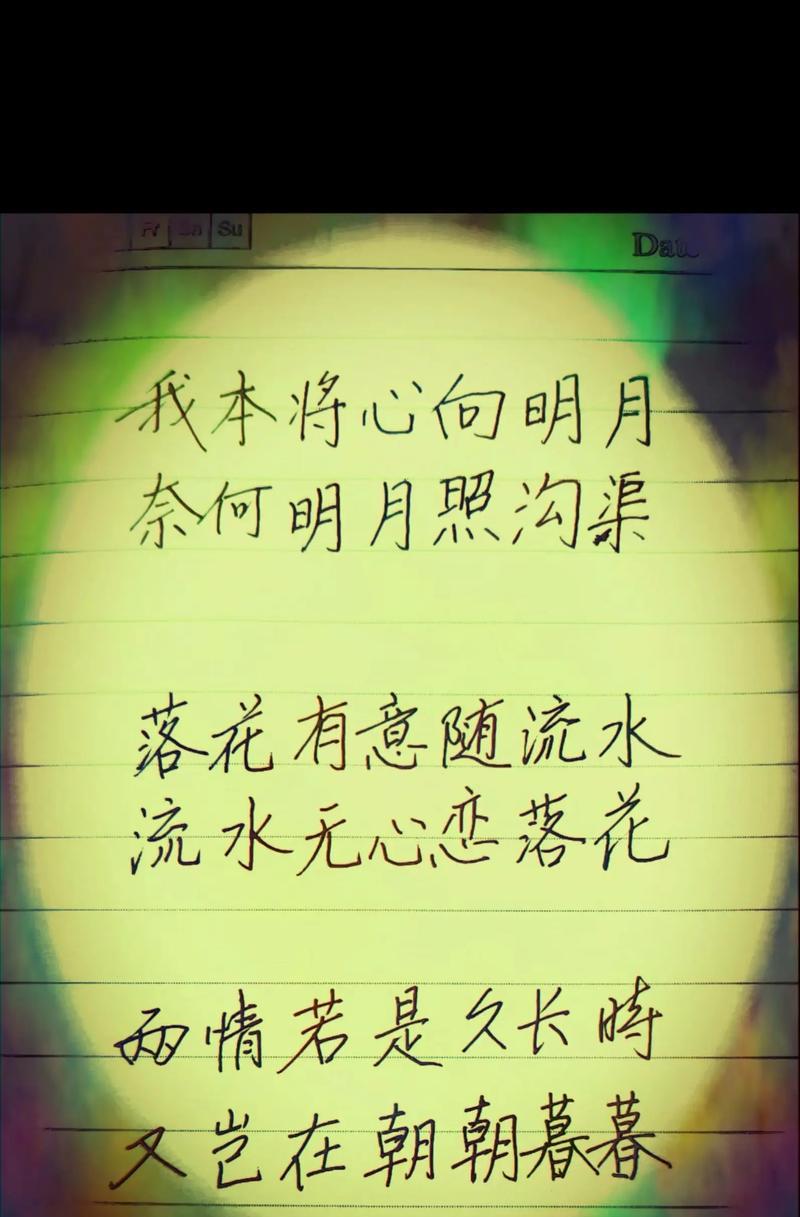 Fr Sa Su
我本将心向明月
奈何明月照沟渠
落花有意随流水
流水无心恋落花
两情若是久长時
又岂在朝朝暮暮